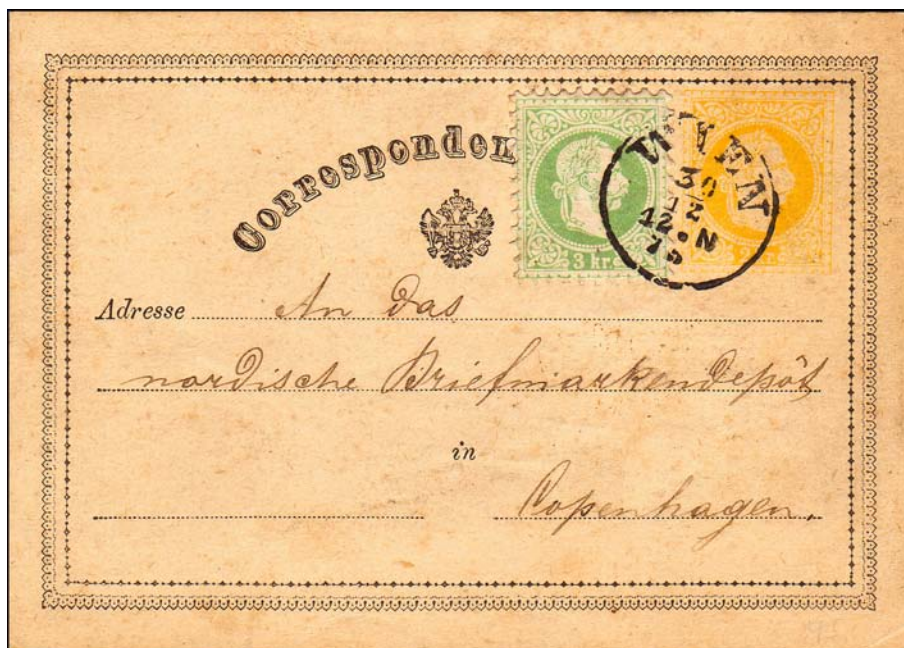 Corresponden
3 kr.
WIEN
30
12
12 • N
Adresse An das
nordische Briefmarkendepôt
in
Copenhagen.